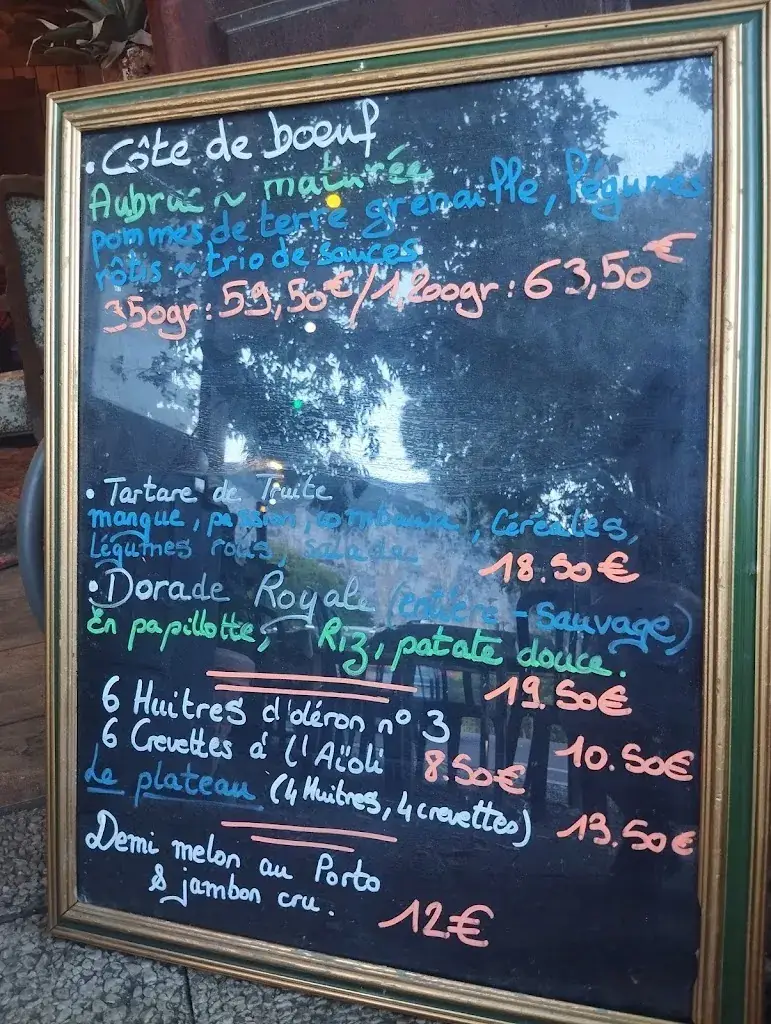 • Côte de boeuf
Aubrac ~ maturée
pommes de terre grenaille, légumes
rôtis ~ trio de sauces
350gr : 59,50€ / 1,200gr : 63,50€
• Tartare de Truite
mangue, passion, combawa, Céréales,
légumes rotis, salade 18.50€
• Dorade Royale (entière - Sauvage)
En papillotte, Riz, patate douce.
19.50€
6 Huitres d'oléron n° 3 10.50€
6 Crevettes à l'Aïoli 8.50€
Le plateau (4 Huitres, 4 crevettes) 13.50€
Demi melon au Porto
& jambon cru. 12€